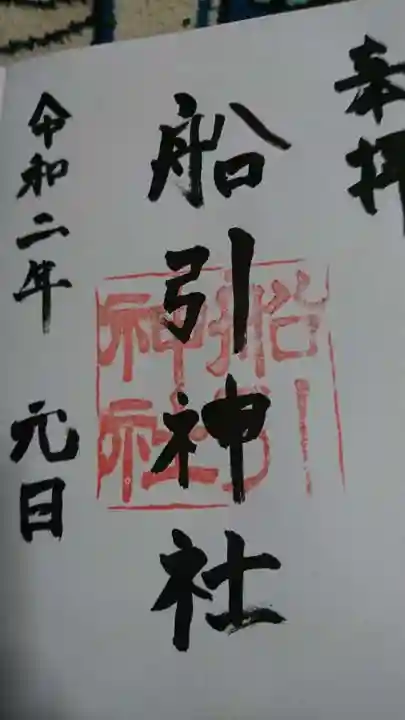 奉拝
船引神社
船引
神社
令和二年 元日